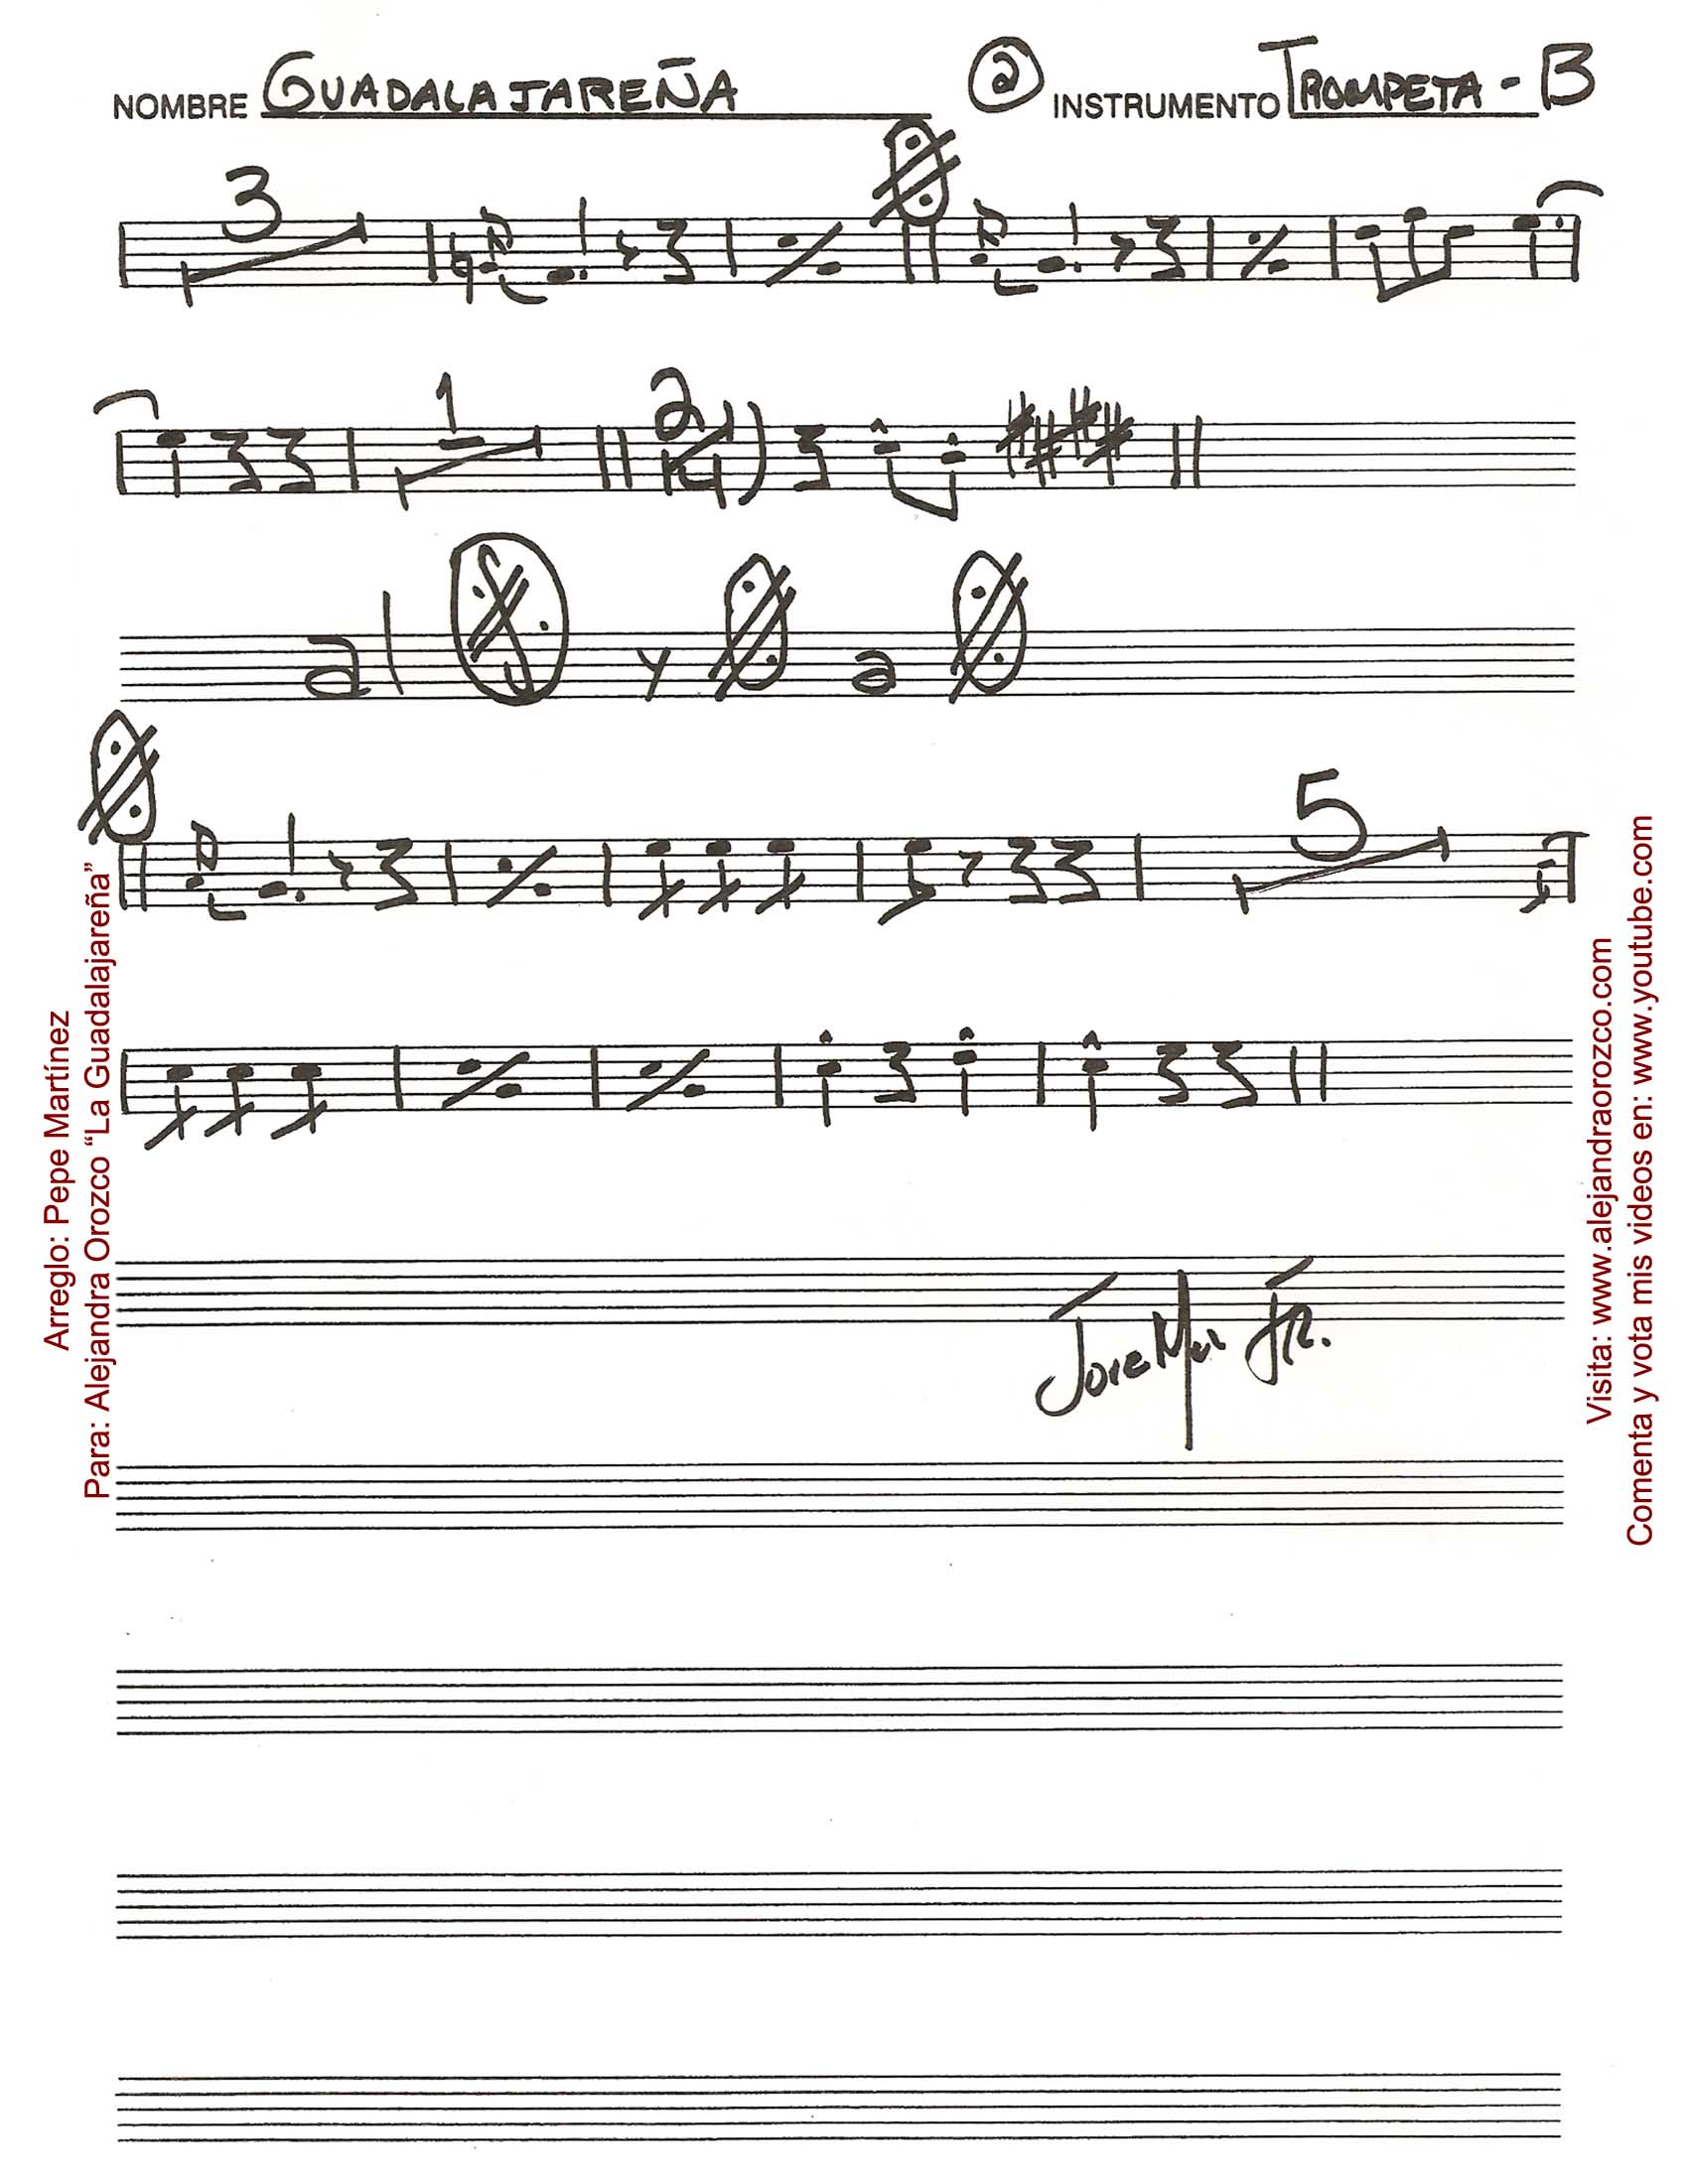 NOMBRE GUADALAJAREÑA 2 INSTRUMENTO TROMPETA - B
3
1 2
al y a
5
Arreglo: Pepe Martínez
Para: Alejandra Orozco “La Guadalajareña”
Visita: www.alejandraorozco.com
Comenta y vota mis videos en: www.youtube.com
Jr.